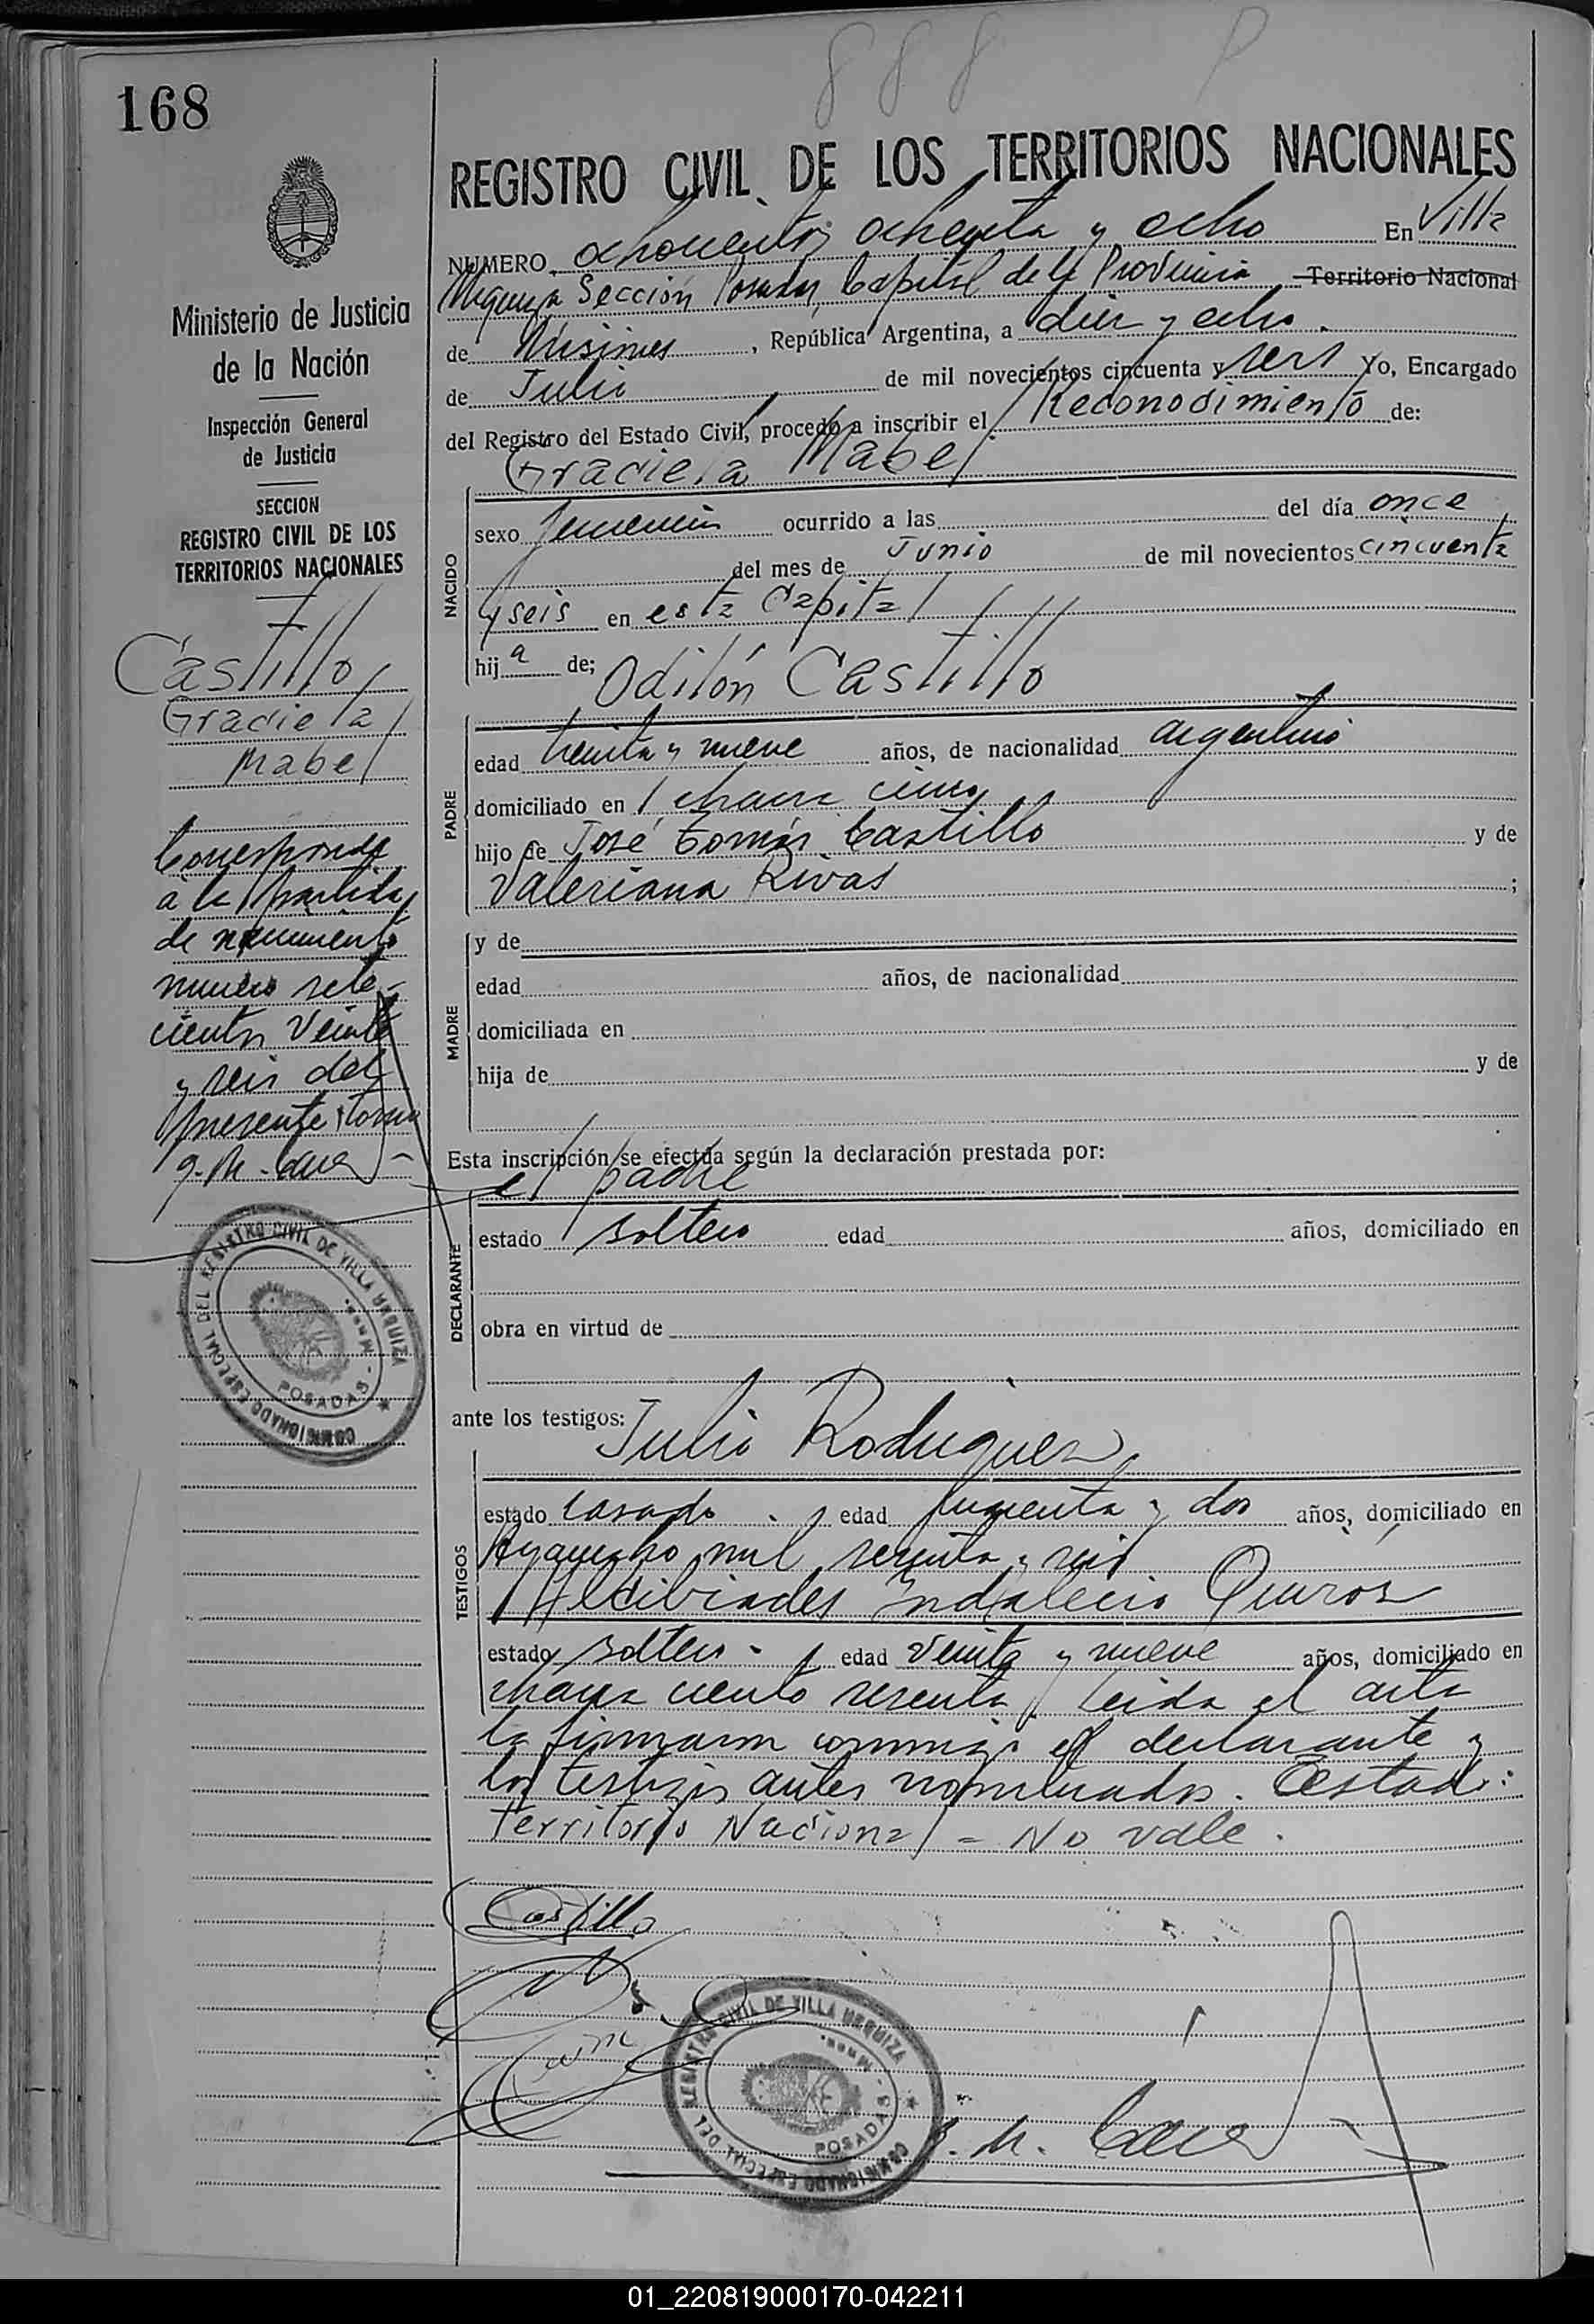 888 P
168
REGISTRO CIVIL DE LOS TERRITORIOS NACIONALES
NUMERO ochocientos ochenta y ocho En Villa
Urquiza Sección Posadas, Capital de la Provincia Territorio Nacional
de Misiones, República Argentina, a diez y ocho
de Julio de mil novecientos cincuenta y seis Yo, Encargado
del Registro del Estado Civil, procedo a inscribir el Reconocimiento de:
Graciela Mabel
NACIDO
sexo femenino ocurrido a las del día once
del mes de Junio de mil novecientos cincuenta
y seis en esta Capital
hija de; Odilón Castillo
PADRE
edad treinta y nueve años, de nacionalidad argentino
domiciliado en chacra cinco
hijo de José Tomás Castillo y de
Valeriana Rivas ;
MADRE
y de
edad años, de nacionalidad
domiciliada en
hija de y de
Esta inscripción se efectúa según la declaración prestada por:
el padre
DECLARANTE
estado soltero edad años, domiciliado en
obra en virtud de
ante los testigos: Julio Rodriguez
TESTIGOS
estado casado edad cuarenta y dos años, domiciliado en
Ayacucho mil sesenta y seis
Alcibiades Indalecio Quiroz
estado soltero edad veinte y nueve años, domiciliado en
chacra ciento sesenta, Leida el acta
la firmaron conmigo el declarante y
los testigos antes nombrados. Testado:
Territorio Nacional = No vale.
Castillo
Ministerio de Justicia
de la Nación
Inspección General
de Justicia
SECCION
REGISTRO CIVIL DE LOS
TERRITORIOS NACIONALES
Castillo
Graciela
Mabel
Corresponde
a la partida
de nacimiento
numero sete-
cientos veinte
y seis del
presente tomo
COMISIONADO ESPECIAL DEL REGISTRO CIVIL DE VILLA URQUIZA
POSADAS - Mnes.
COMISIONADO ESPECIAL DEL REGISTRO CIVIL DE VILLA URQUIZA
POSADAS - Mnes.
01_220819000170-042211